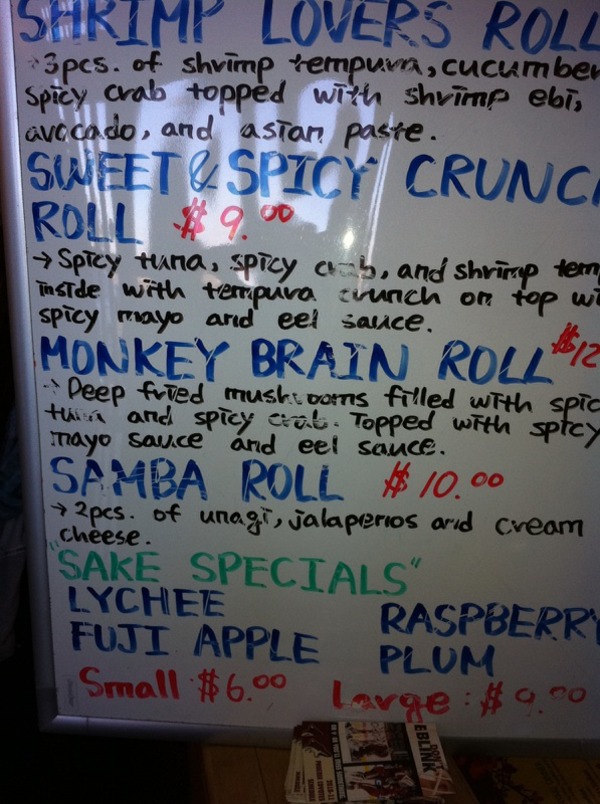 SHRIMP LOVERS ROLL
→ 3pcs. of shrimp tempura, cucumber
Spicy crab topped with shrimp ebi,
avocado, and asian paste.
SWEET & SPICY CRUNC
ROLL $9.00
→ Spicy tuna, spicy crab, and shrimp tem
inside with tempura crunch on top wi
spicy mayo and eel sauce.
MONKEY BRAIN ROLL $12
→ Deep fried mushrooms filled with spic
tuna and spicy crab. Topped with spicy
mayo sauce and eel sauce.
SAMBA ROLL $10.00
→ 2pcs. of unagi, jalapenos and cream
cheese.
"SAKE SPECIALS"
LYCHEE RASPBERRY
FUJI APPLE PLUM
Small $6.00 Large: $9.00
DON'T
BLINK